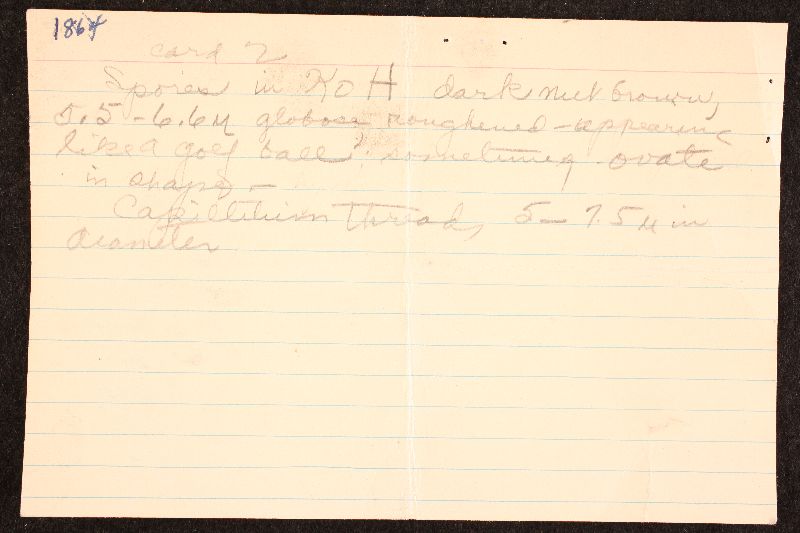 1864
card 2
Spores in KOH dark nut brown,
5.5-6.6µ globose roughened-appearing
like a golf ball; sometimes ovate
in shape -
Capillitium threads 5-7.5µ in
diameter